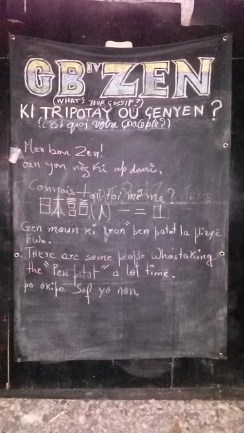 GB"ZEN
(WHAT'S YOUR GOSSIP?)
KI TRIPOTAY OU GENYEN?
(c'est quoi votre)
Men bon Zen!
gen yon nèg ki ap domi.
Connais-toi toi même?
日本語 (人) 一 二
Gen moun ki pran pen patat la plizyè
fwa.
THERE are some people who's taking
the "Pen patat" a lot time.
pa okipe yo non